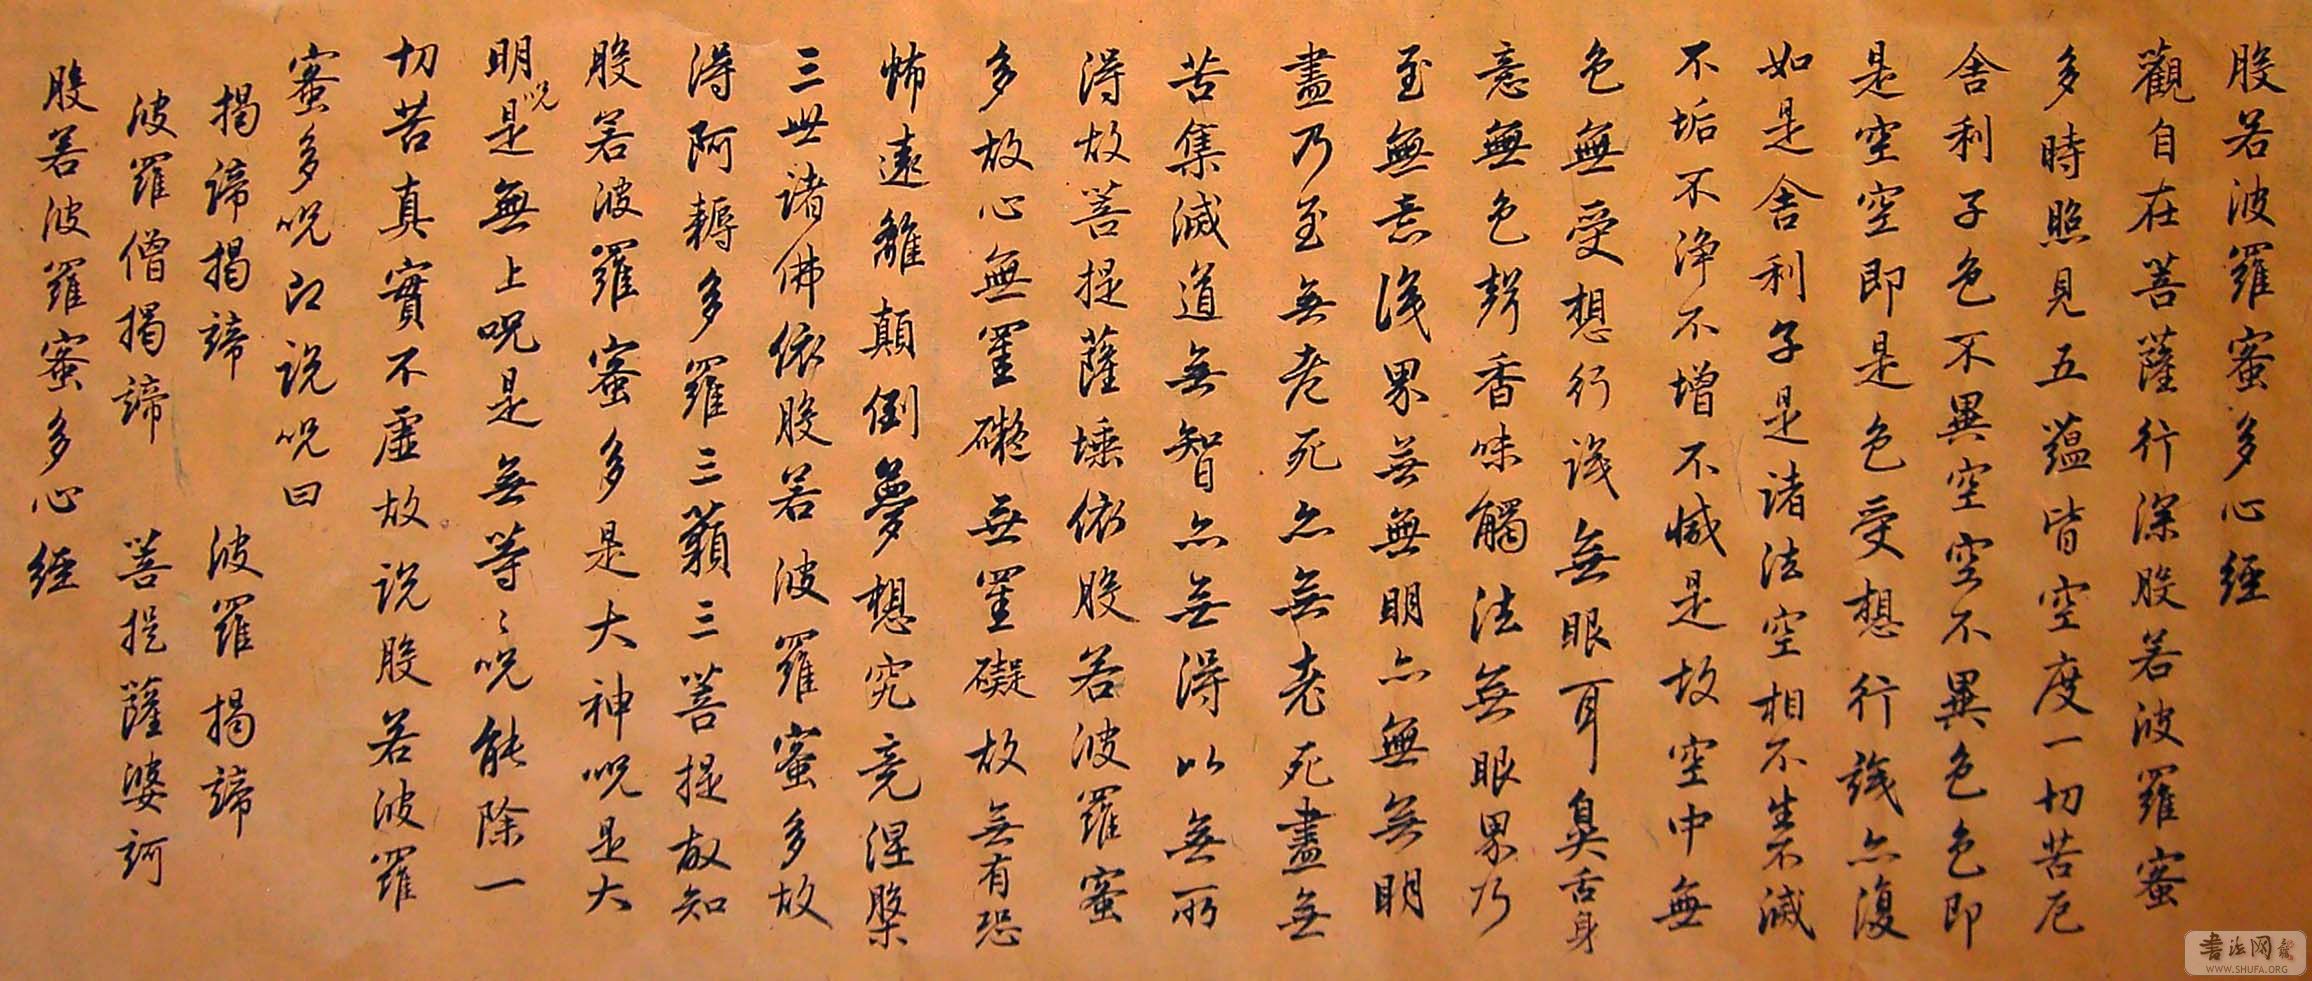 般若波羅蜜多心經
觀自在菩薩行深般若波羅蜜
多時照見五蘊皆空度一切苦厄
舍利子色不異空空不異色色即
是空空即是色受想行識亦復
如是舍利子是諸法空相不生不滅
不垢不淨不增不減是故空中無
色無受想行識無眼耳鼻舌身
意無色聲香味觸法無眼界乃
至無意識界無無明亦無無明
盡乃至無老死亦無老死盡無
苦集滅道無智亦無得以無所
得故菩提薩埵依般若波羅蜜
多故心無罣礙無罣礙故無有恐
怖遠離顛倒夢想究竟涅槃
三世諸佛依般若波羅蜜多故
得阿耨多羅三藐三菩提故知
般若波羅蜜多是大神呪是大
明呪是無上呪是無等〻呪能除一
切苦真實不虛故說般若波羅
蜜多呪即說呪曰
揭諦揭諦 波羅揭諦
波羅僧揭諦 菩提薩婆訶
般若波羅蜜多心經
書法网
WWW.SHUFA.ORG